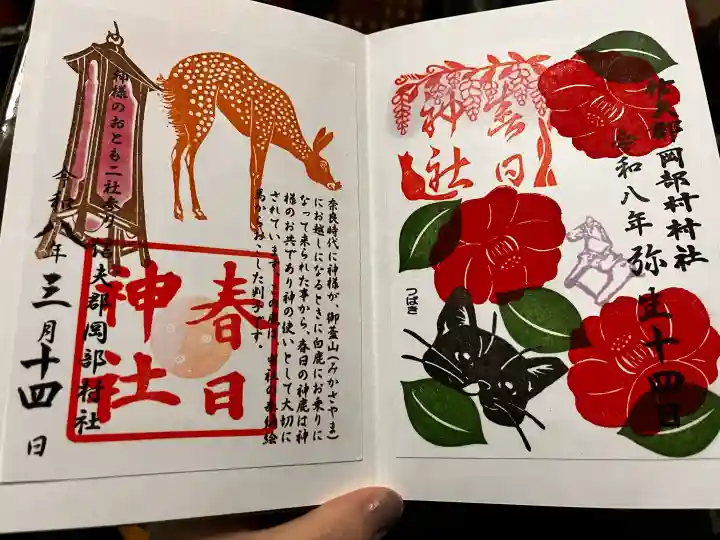 奈良時代に神様が、御蓋山(みかさやま)
にお越しになるときに白鹿にお乗りに
なって来られた事から、春日の神鹿は神
様のお共であり神の使いとして大切に
されています。この鹿は、当社の奉納絵
馬からおこした判子です。
神様のおとも二社参り
春日
神社
信夫郡岡部村社
令和八年
三月十四日
信夫郡岡部村村社
令和八年
弥生十四日
春日
神社
つばき